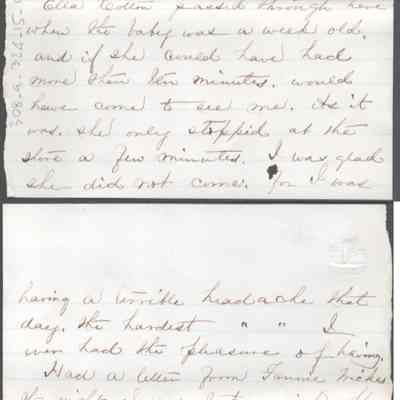 Ella Cotton passed through here
when the baby was a week old.
and if she could have had
more then ten minutes. would
have come to see me. As it
was. she only stoppid at the
store a few minutes. I was glad
she did not come. For I was
having a terrible headache that
day. the hardest " " I
ever had the pleasure of having.
Had a letter from Fannie